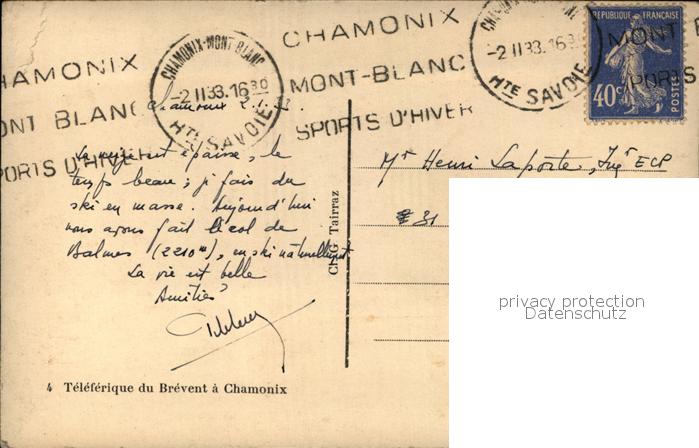 CHAMONIX
MONT-BLANC
SPORTS D'HIVER
CHAMONIX
MONT BLANC
SPORTS D'HIVER
CHAMONIX-MONT-BLANC
-2 II 33.16 30
HTE SAVOIE
-2 II 33.16 30
HTE SAVOIE
RÉPUBLIQUE FRANÇAISE
40c
POSTES
MONT-B
SPORTS
Chamonix
La neige est épaisse, le
temps beau; j'fais du
ski en masse. Aujourd'hui
nous avons fait le col de
Balmes (2210m), en ski naturellement
La vie est belle
Amitiés
Mr Henri Laporte, Ingr ECP
31
Cl. G. Tairraz
4 Téléférique du Brévent à Chamonix
privacy protection
Datenschutz